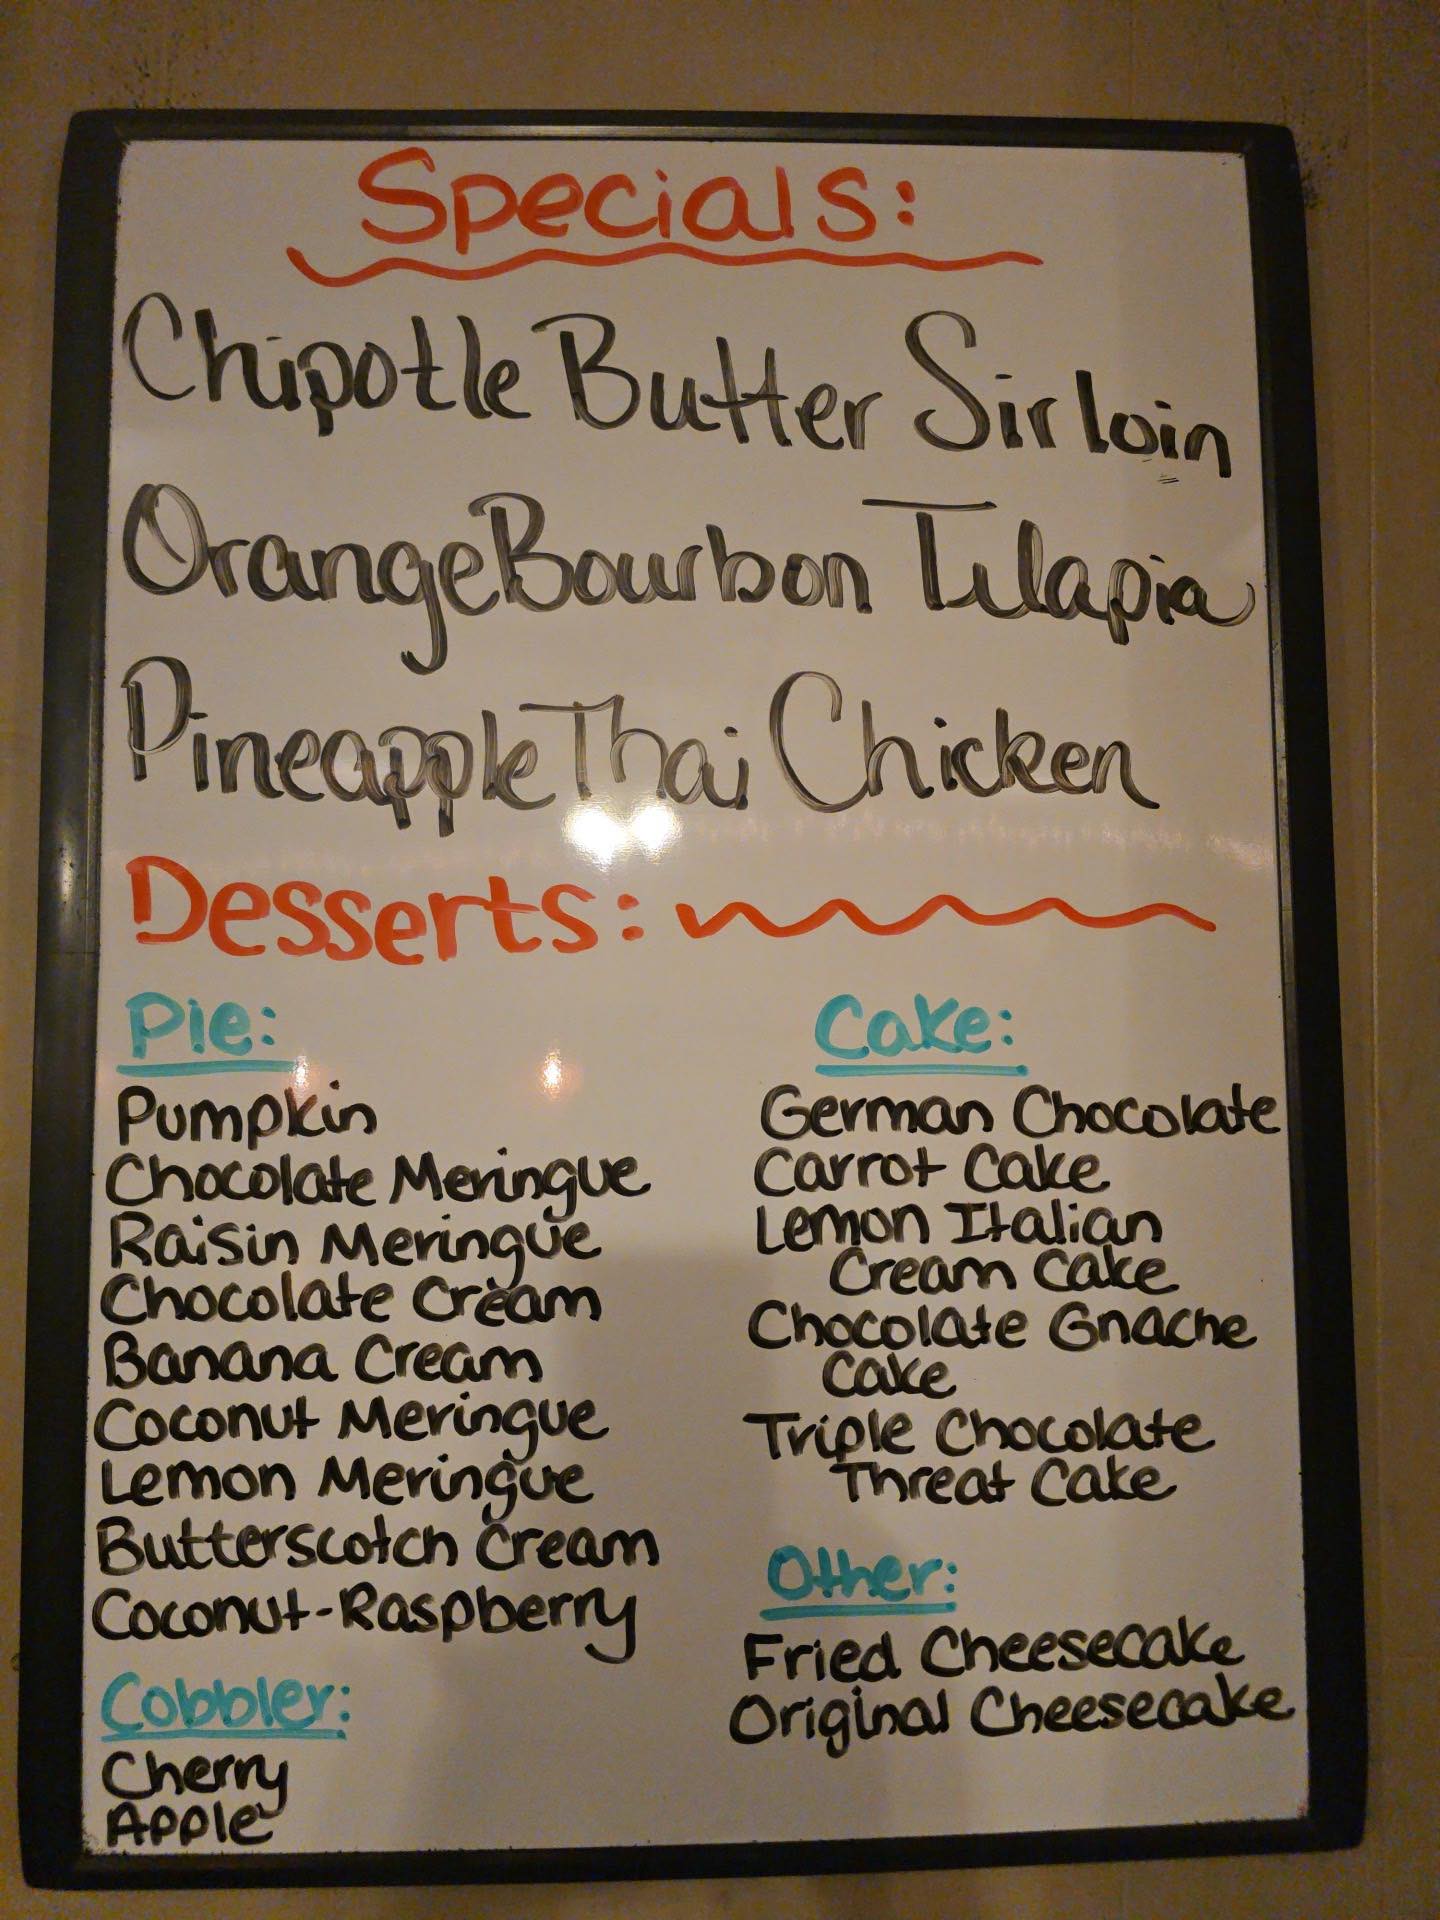 Specials:
Chipotle Butter Sirloin
Orange Bourbon Tilapia
Pineapple Thai Chicken
Desserts:
Pie:
Pumpkin
Chocolate Meringue
Raisin Meringue
Chocolate Cream
Banana Cream
Coconut Meringue
Lemon Meringue
Butterscotch Cream
Coconut-Raspberry
Cobbler:
Cherry
Apple
Cake:
German Chocolate
Carrot Cake
Lemon Italian
Cream Cake
Chocolate Gnache
Cake
Triple Chocolate
Threat Cake
Other:
Fried Cheesecake
Original Cheesecake